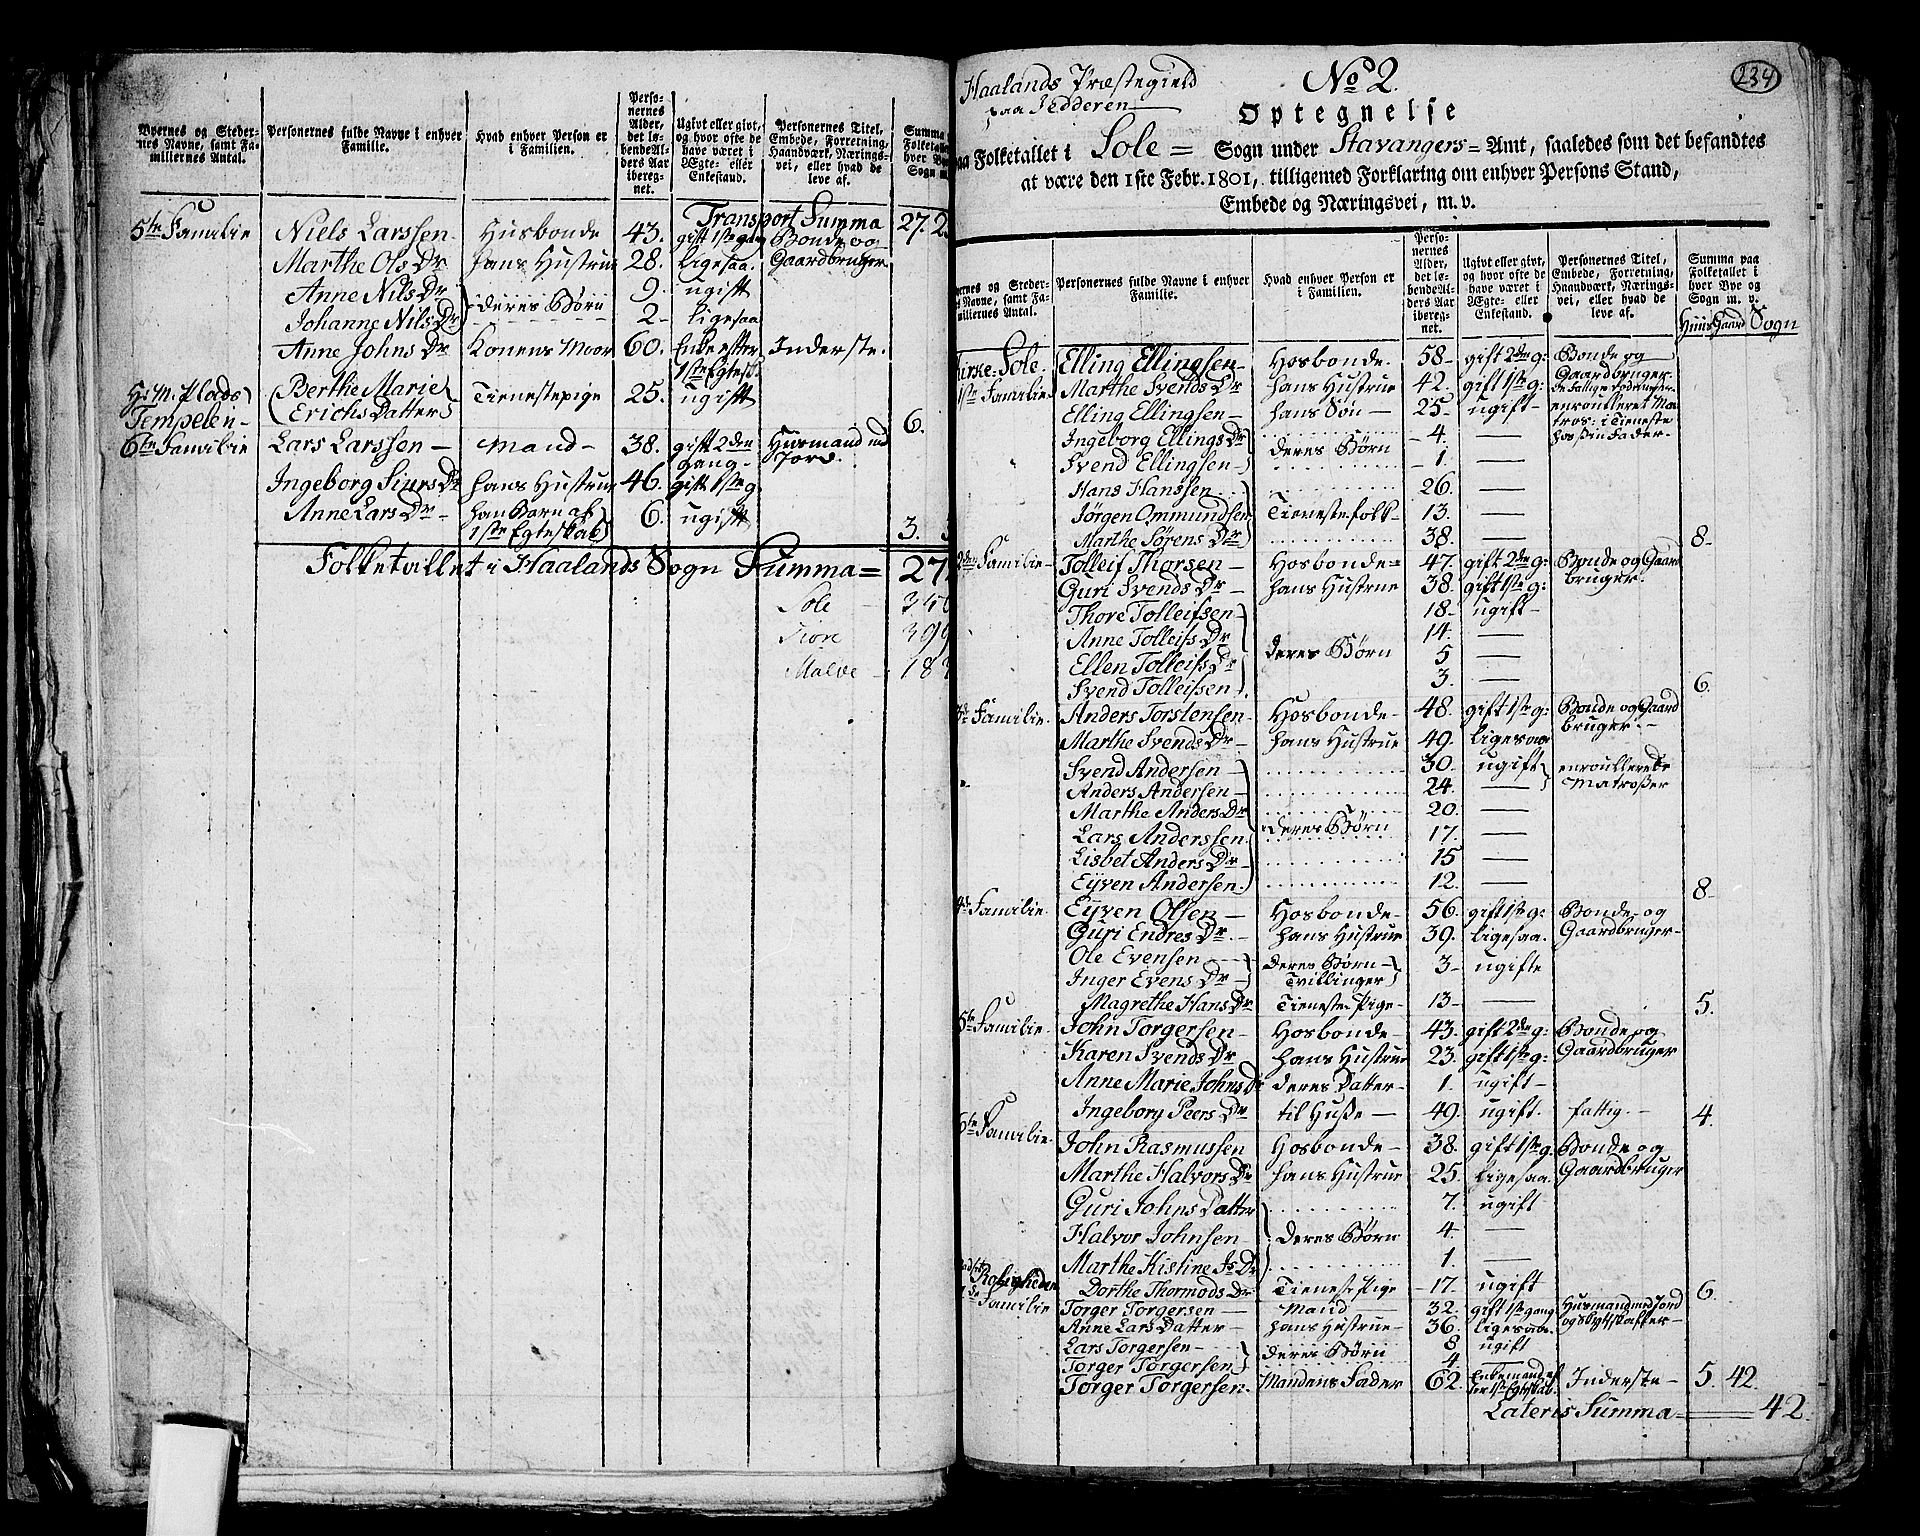 Byernes og Steder-
nes Navne, samt Fa-
miliernes Antal.
Personernes fulde Navne i enhver
Familie.
Hvad enhver Person er
i Familien.
Perso-
nernes
Alder,
det lø-
bende Al-
ders Aar
ibereg-
net.
Ugivt eller givt,
og hvor ofte de
have været i
Ægte- eller
Enkestand.
Personernes Titel,
Embede, Forretning,
Haandværk, Nærings-
vei, eller hvad de
leve af.
Summa
Folketalle
hver By
Sogn m.
Transport Summa 27.
5te Familie Niels Larssen Husbonde 43. gift 1ste gang Bonde og
Marthe Ols Dr hans Hustrue 28. ligesaa Gaardbruger
Anne Nils Dr deres Børn 9. ugift
Johanne Nils Dr 2 ligesaa
Anne Johns Dr Konens Moor 60. Enke efter Inderste.
1ste Egtesk.
H: M: Plads Berthe Marie Tienestepige 25. ugift
Tempelen Erichs Datter 6.
6te Familie Lars Larssen Mand 38. gift 2den Husmand ud
gang Jord.
Ingeborg Siurs Dr hans Hustrue 46. gift 1ste g
Anne Lars Dr han Barn af 6. ugift
1ste Egteskab 3.
Folketallet i Haalands Sogn Summa = 27
Sole
Tiore 399
Malve 18
234
Haalands Præstegield
paa Jedderen
No 2.
Optegnelse
Folketallet i Sole = Sogn under Stavangers = Amt, saaledes som det befandtes
at være den 1ste Febr. 1801, tilligemed Forklaring om enhver Persons Stand,
Embede og Næringsvei, m. v.
ernes og Steder-
Navne, samt Fa-
miliernes Antal.
Personernes fulde Navne i enhver
Familie.
Hvad enhver Person er
i Familien.
Perso-
nernes
Alder,
det lø-
bende Al-
ders Aar
ibereg-
net.
Ugivt eller givt,
og hvor ofte de
have været i
Ægte- eller
Enkestand.
Personernes Titel,
Embede, Forretning,
Haandværk, Nærings-
vei, eller hvad de
leve af.
Summa paa
Folketallet i
hver Bye og
Sogn m. v.
Huus Gaard Sogn
Kirke-Sole. Elling Ellingsen Hosbonde 58 gift 2de g: Bonde og
Gaardbruger
1ste Familie Marthe Svends Dr hans Hustrue 42. gift 1ste g:
Elling Ellingsen hans Søn 25 ugift enroulleret Ma
tros: i Tieneste
Ingeborg Ellings Dr deres Børn 4. hos sin Fader
Svend Ellingsen 1.
Hans Hanssen 26.
Jørgen Ommundsen Tienestefolk 13.
Marthe Sørens Dr 38. 8
2den Familie Tolleif Thorsen Hosbonde 47. gift 2de g: Bonde og Gaard
bruger.
Guri Svends Dr hans Hustrue 38. gift 1ste g:
Thore Tolleifsen 18 ugift
Anne Tolleifs Dr deres Børn 14.
Ellen Tolleifs Dr 5
Svend Tolleifsen 3. 6.
3de Familie Anders Torstensen Hosbonde 48. gift 1ste g: Bonde og Gaard
bruger.
Marthe Svends Dr hans Hustrue 49. ligesaa
Svend Andersen 30. ugift enroullerede
Anders Andersen 24. Matroßer
Marthe Anders Dr 20.
Lars Anderssen deres Børn 17.
Lisbet Anders Dr 15
Eyven Andersen 12. 8
4de Familie Eyven Olsen Hosbonde 56. gift 1ste g: Bonde og
Guri Endres Dr hans Hustrue 39. ligesaa. Gaardbruger
Ole Evensen deres Børn 3 ugifte
Inger Evens Dr Tvillinger
Magrethe Hans Dr Tieneste Pige 13 5.
5te Familie John Torgersen Hosbonde 43. gift 2de g: Bonde og
Karen Svends Dr hans Hustrue 23. gift 1ste g: Gaardbruger
Anne Marie Johns Dr deres Datter 1. ugift
Ingeborg Peers Dr til Huße 49. ugift. fattig. 4.
6te Familie
John Rasmussen Hosbonde 38. gift 1ste g. Bonde og
Marthe Halvors Dr hans Hustrue 25. ligesaa. Gaardbruger
Guri Johns Datter 7. ugift
Halvor Johnsen deres Børn 4.
Marthe Kistine Js Dr 1.
Roligheden Dorthe Thormods Dr Tieneste Pige 17. ugift 6.
Familie Torger Torgersen Mand 32. gift 1ste gang Husmand med Jord
Anne Lars Datter hans Hustrue 36. ligesaa.
Lars Torgersen deres Børn 8 ugift
Torger Torgersen 4.
Torger Torgersen Mandens Fader 62. Enkemand ef
ter 1ste Egteskab. Inderste 5. 42.
Lateris Summa 42.